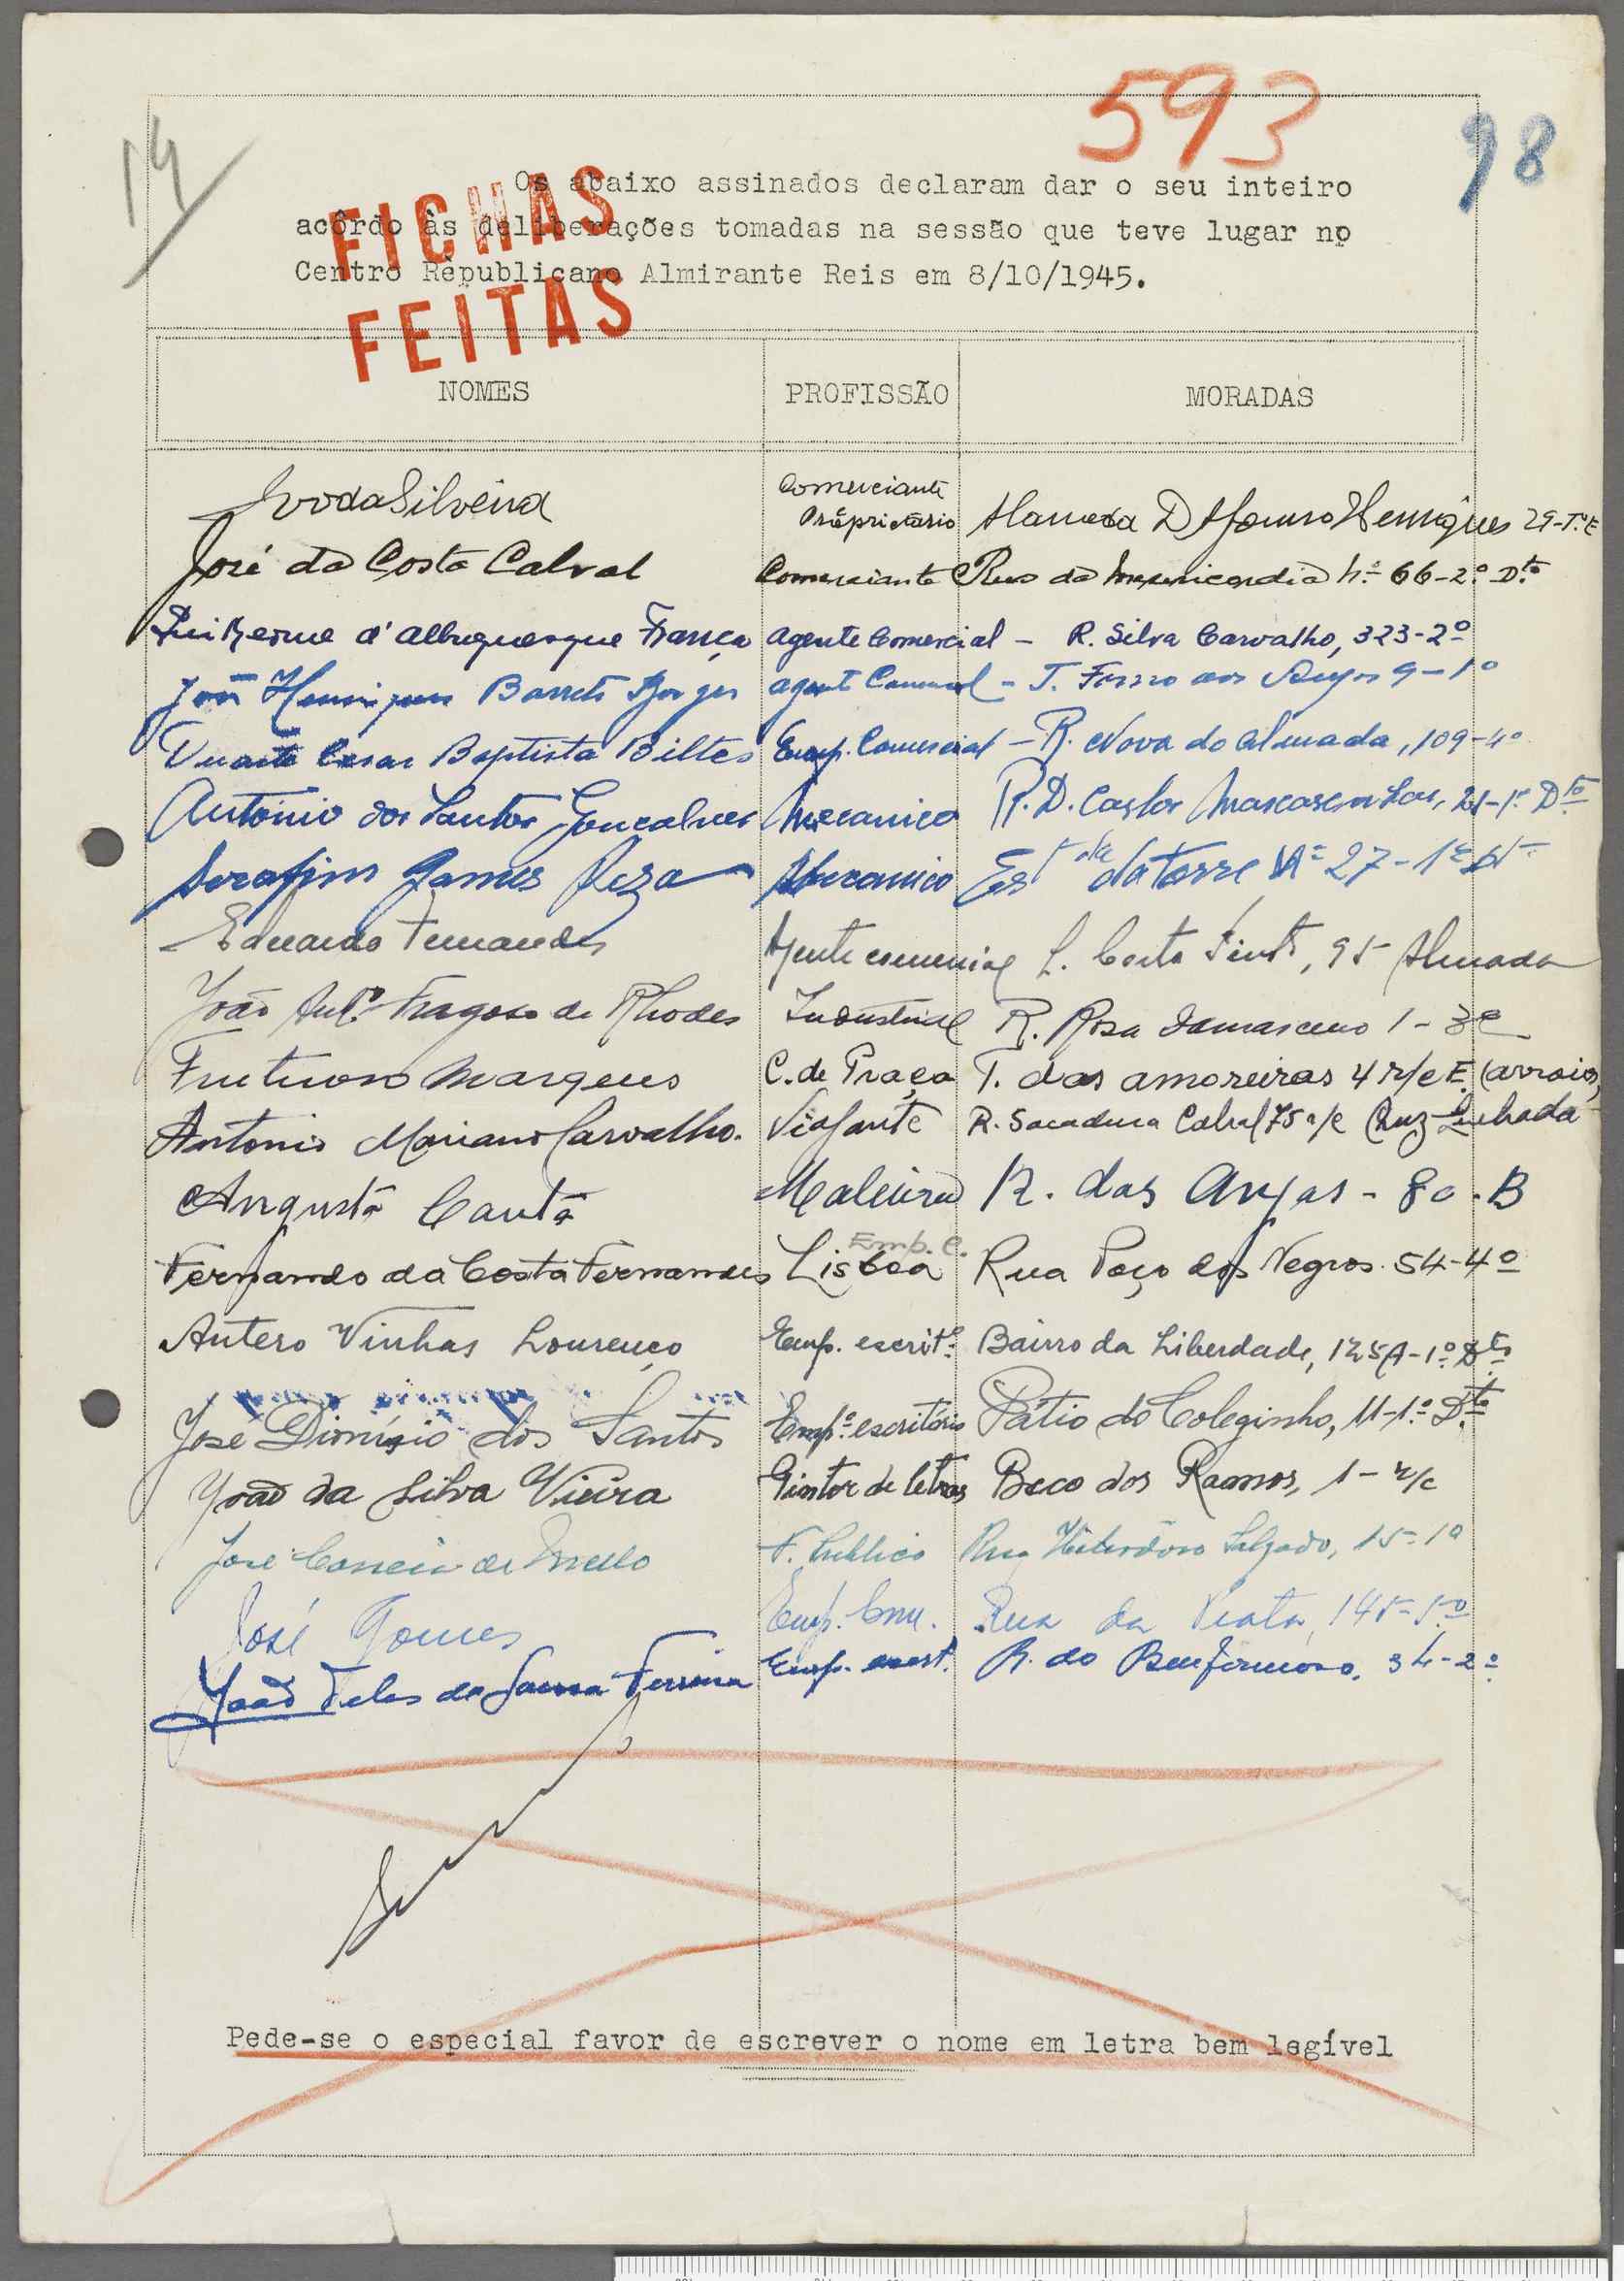 593
98
14
Os abaixo assinados declaram dar o seu inteiro
acôrdo às deliberações tomadas na sessão que teve lugar no
Centro Republicano Almirante Reis em 8/10/1945.
FICHAS
FEITAS
NOMES PROFISSÃO MORADAS
Ivo da Silveira Comerciante Proprietário Alameda D Afonso Henriques 29-
José da Costa Cabral Comerciante Rua da Misericordia nº 66-2º Dto
Guilherme d'Albuquerque França Agente Comercial - R. Silva Carvalho, 323-2º
João Henriques Barreto Borges agente Comercial - T. Forno aos Anjos 9-1º
Duarte Cesar Baptista Biltes Emp. Comercial - R. Nova do Almada, 109-4º
António dos Santos Gonçalves Mecanico R. D. Carlos Mascarenhas, 21-1º Dto
Serafim Gomes Mecanico Estda da torre Nº 27-1º
Eduardo Fernandes Agente comercial L. Costa Pinto, 95 Almada
João Antº Fragoso de Rhodes Industrial R. Rosa Damasceno 1-3º
Frutuoso Marques C. de Praça T. das amoreiras 4 r/c E. (arroios)
Antonio Mariano Carvalho. Viajante R. Sacadura Cabral 75 r/c Cruz Quebrada
Augusto Canto R. dos Anjos - 80-B
Emp. C.
Fernando da Costa Fernandes Lisboa Rua Poço dos Negros 54-4º
Antero Vinhas Lourenço Emp. escritº Bairro da Liberdade, 125A-1º Dto
José Dionísio dos Santos Empº escritório Pátio do Coleginho, 11-1º Dto
João da Silva Vieira Pintor de letras Beco dos Ramos, 1-r/c
José Correia de Mello F. Publico Rua Heliodoro Salgado, 15-1º
José Gomes Emp. Com. Rua da Prata, 145-5º
João Teles da Ferreira Emp. R. do Benformoso, 34-2º
Pede-se o especial favor de escrever o nome em letra bem legível